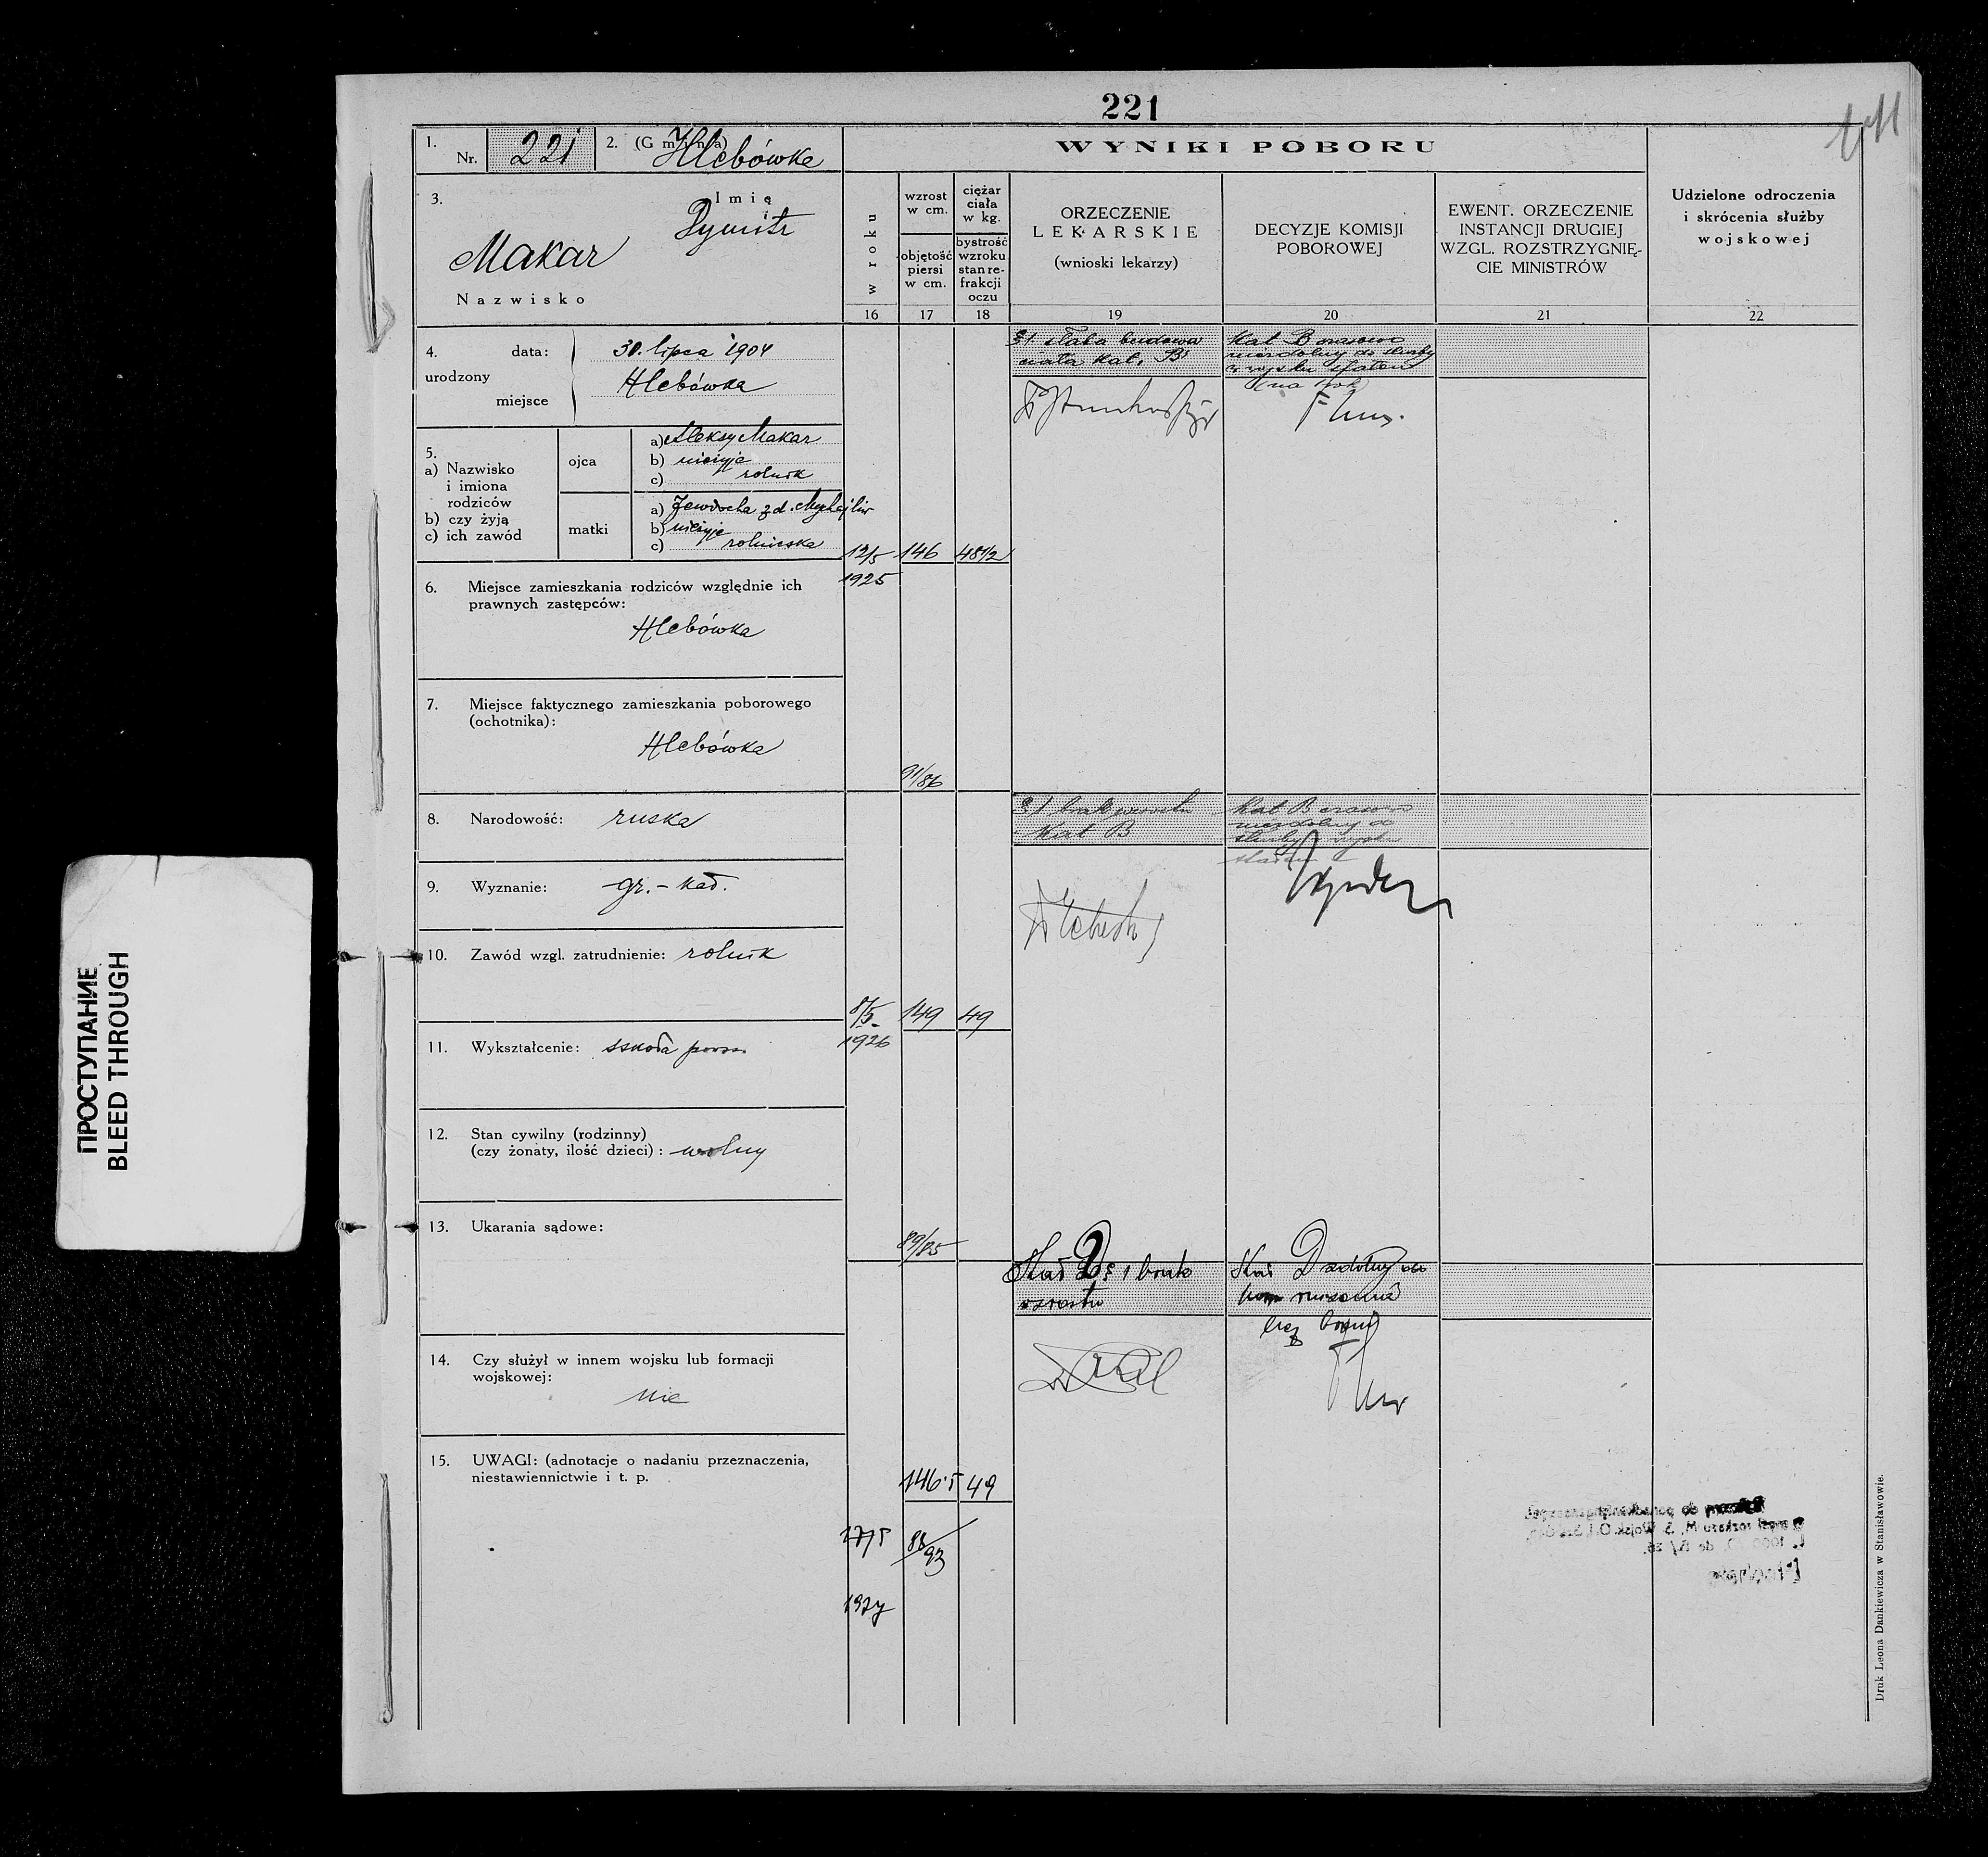 221
1. Nr. 221 2. (Gmina) Hlebówka
3. Imię
Dymitr
Makar
Nazwisko
WYNIKI POBORU
w roku
wzrost w cm.
objętość piersi w cm.
ciężar ciała w kg.
bystrość wzroku stan re-frakcji oczu
ORZECZENIE
LEKARSKIE
(wnioski lekarzy)
DECYZJE KOMISJI
POBOROWEJ
EWENT. ORZECZENIE
INSTANCJI DRUGIEJ
WZGL. ROZSTRZYGNIĘ-
CIE MINISTRÓW
Udzielone odroczenia
i skrócenia służby
wojskowej
16 17 18 19 20 21 22
4. urodzony
data: 30. lipca 1904
miejsce Hlebówka
5.
a) Nazwisko
i imiona
rodziców
b) czy żyją
c) ich zawód
ojca
a) Aleksy Makar
b) nieżyje
c) rolnik
matki
a) Jewdocha z d. Mychajliw
b) nieżyje
c) rolniczka
6. Miejsce zamieszkania rodziców względnie ich
prawnych zastępców:
Hlebówka
7. Miejsce faktycznego zamieszkania poborowego
(ochotnika):
Hlebówka
8. Narodowość: ruska
9. Wyznanie: gr.-kat.
10. Zawód wzgl. zatrudnienie: rolnik
11. Wykształcenie: szkoła
12. Stan cywilny (rodzinny)
(czy żonaty, ilość dzieci): wolny
13. Ukarania sądowe:
14. Czy służył w innem wojsku lub formacji
wojskowej:
nie
15. UWAGI: (adnotacje o nadaniu przeznaczenia,
niestawiennictwie i t. p.
12/5 146 48 1/2
1925
91/86
słaba budowa
ciała Kat. B
Kat B czasowo
niezdolny do służby
w wojsku stałem
(na 1 rok)
8/5 149 49
1926
89/85
Kat B
Kat B czasowo
niezdolny do
służby
146·5 49
17/5 88/93
1927
Kat D § 1 brak
wzrostu
Kat D zdolny
bez broni
Druk Leona Dankiewicza w Stanisławowie.
ПРОСТУПАНИЕ
BLEED THROUGH